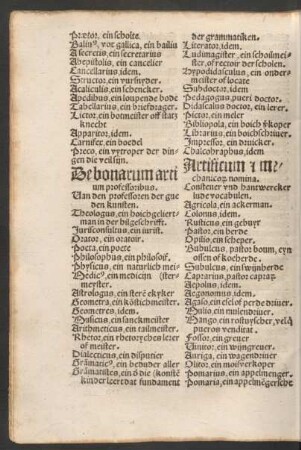 Pretor, ein scholte.
Baliuꝰ, vox gallica, ein balliu
A secretis, ein secretarius
Abepistolis, ein cancelier
Cancellarius, idem.
Structor, ein vursnyder.
Acaliculis, ein schencker.
Apedibus, ein loupende bode
Tabellarius, ein briefdrager.
Lictor, ein bonmeister off statz
knecht
Apparitor, idem.
Carnifex, ein boedel
Preco, ein vytroper der din-
gen die veil syn.
De bonarum arti
um professoribus.
Van den professoren der gue
den kunsten.
Theologus, ein hoichgeliert-
man in der hilgeschrifft.
Jurisconsultus, ein iurist.
Orator, ein oratoir.
Poeta, ein poete
Philosophus, ein philosoif.
Physicus, ein naturlich mei-
Medicꝰ, ein medicin (ster
meyster.
Astrologus, ein stere ekyker
Geometra, ein köstichmeister.
Geometres, idem.
Musicus, ein sanckmeister
Arithmeticus, ein railmeister.
Rhetor, ein rhetorychen lerer
of meister.
Dialecticus, ein disputier
Grāmaticꝰ, ein beduder aller
Grāmatistes, ein d̄ die (konstē
kinder leert dat fundament
der grammatiken.
Literator, idem.
Ludimagister, ein schoilmei-
ster, of rector der scholen.
Hypodidasculus, ein onder-
meister of locate
Subdoctor, idem
Pedagogus, pueri doctor.
Didasculus doctor, ein lerer.
Pictor, ein meler
Bibliopola, ein boich vkoper
Librarius, ein boichschriuer.
Impressor, ein drucker.
Chalcographus, idem.
Artificum ⁊ me-
chanicorꝫ nomina.
Constener vnd hantwercker
lude vocabulen.
Agricola, ein ackerman.
Colonus, idem.
Rusticus, ein gebuyr
Pastor, ein herde
Opilio, ein scheper.
Bubulcus, pastor boum, eyn
ossen of koeherde.
Subulcus, ein swijnherde
Caprarius, pastor capraꝝ.
Aepolus, idem.
Aegonomus, idem.
Agaso, ein esel of perde driuer.
Mulio, ein mulendriuer.
Mango, ein rostuyscher, velqͥ
pueros vendit.
Fossor, ein greuer
Vinitor, ein wijngreuer.
Auriga, ein wagendriuer
Olitor, ein moisverkoper
Pomarius, ein appelmenger.
Pomaria, ein appelmēgersche